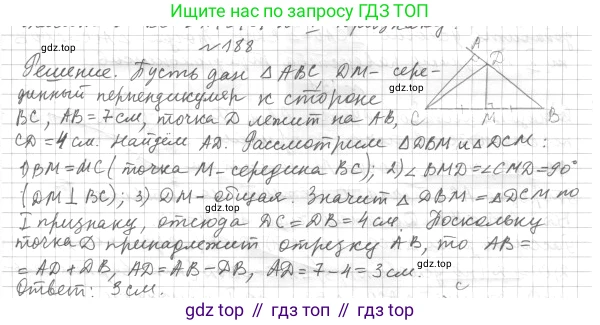 Ищите нас по запросу ГДЗ ТОП
gdz top
№188
A
Решение. Пусть дан △ABC, DM- сере-
D
gdz.top
динный перпендикуляр к стороне
BC, AB=7см, точка D лежит на AB,
C
M
B
CD=4см. Найдём AD. Рассмотрим △DBM и △DCM:
gdz.top
1) BM=MC (точка M-середина BC); 2) ∠BMD=∠CMD=90°
(DM⊥BC); 3) DM- общая. Значит △DBM=△DCM по
I признаку, отсюда DC=DB=4см. Поскольку
точка D принадлежит отрезку AB, то AB=
=AD+DB, AD=AB-DB, AD=7-4=3см.
gdz.top
gdz.top
Ответ: 3см.
gdz top // гдз топ // gdz.top